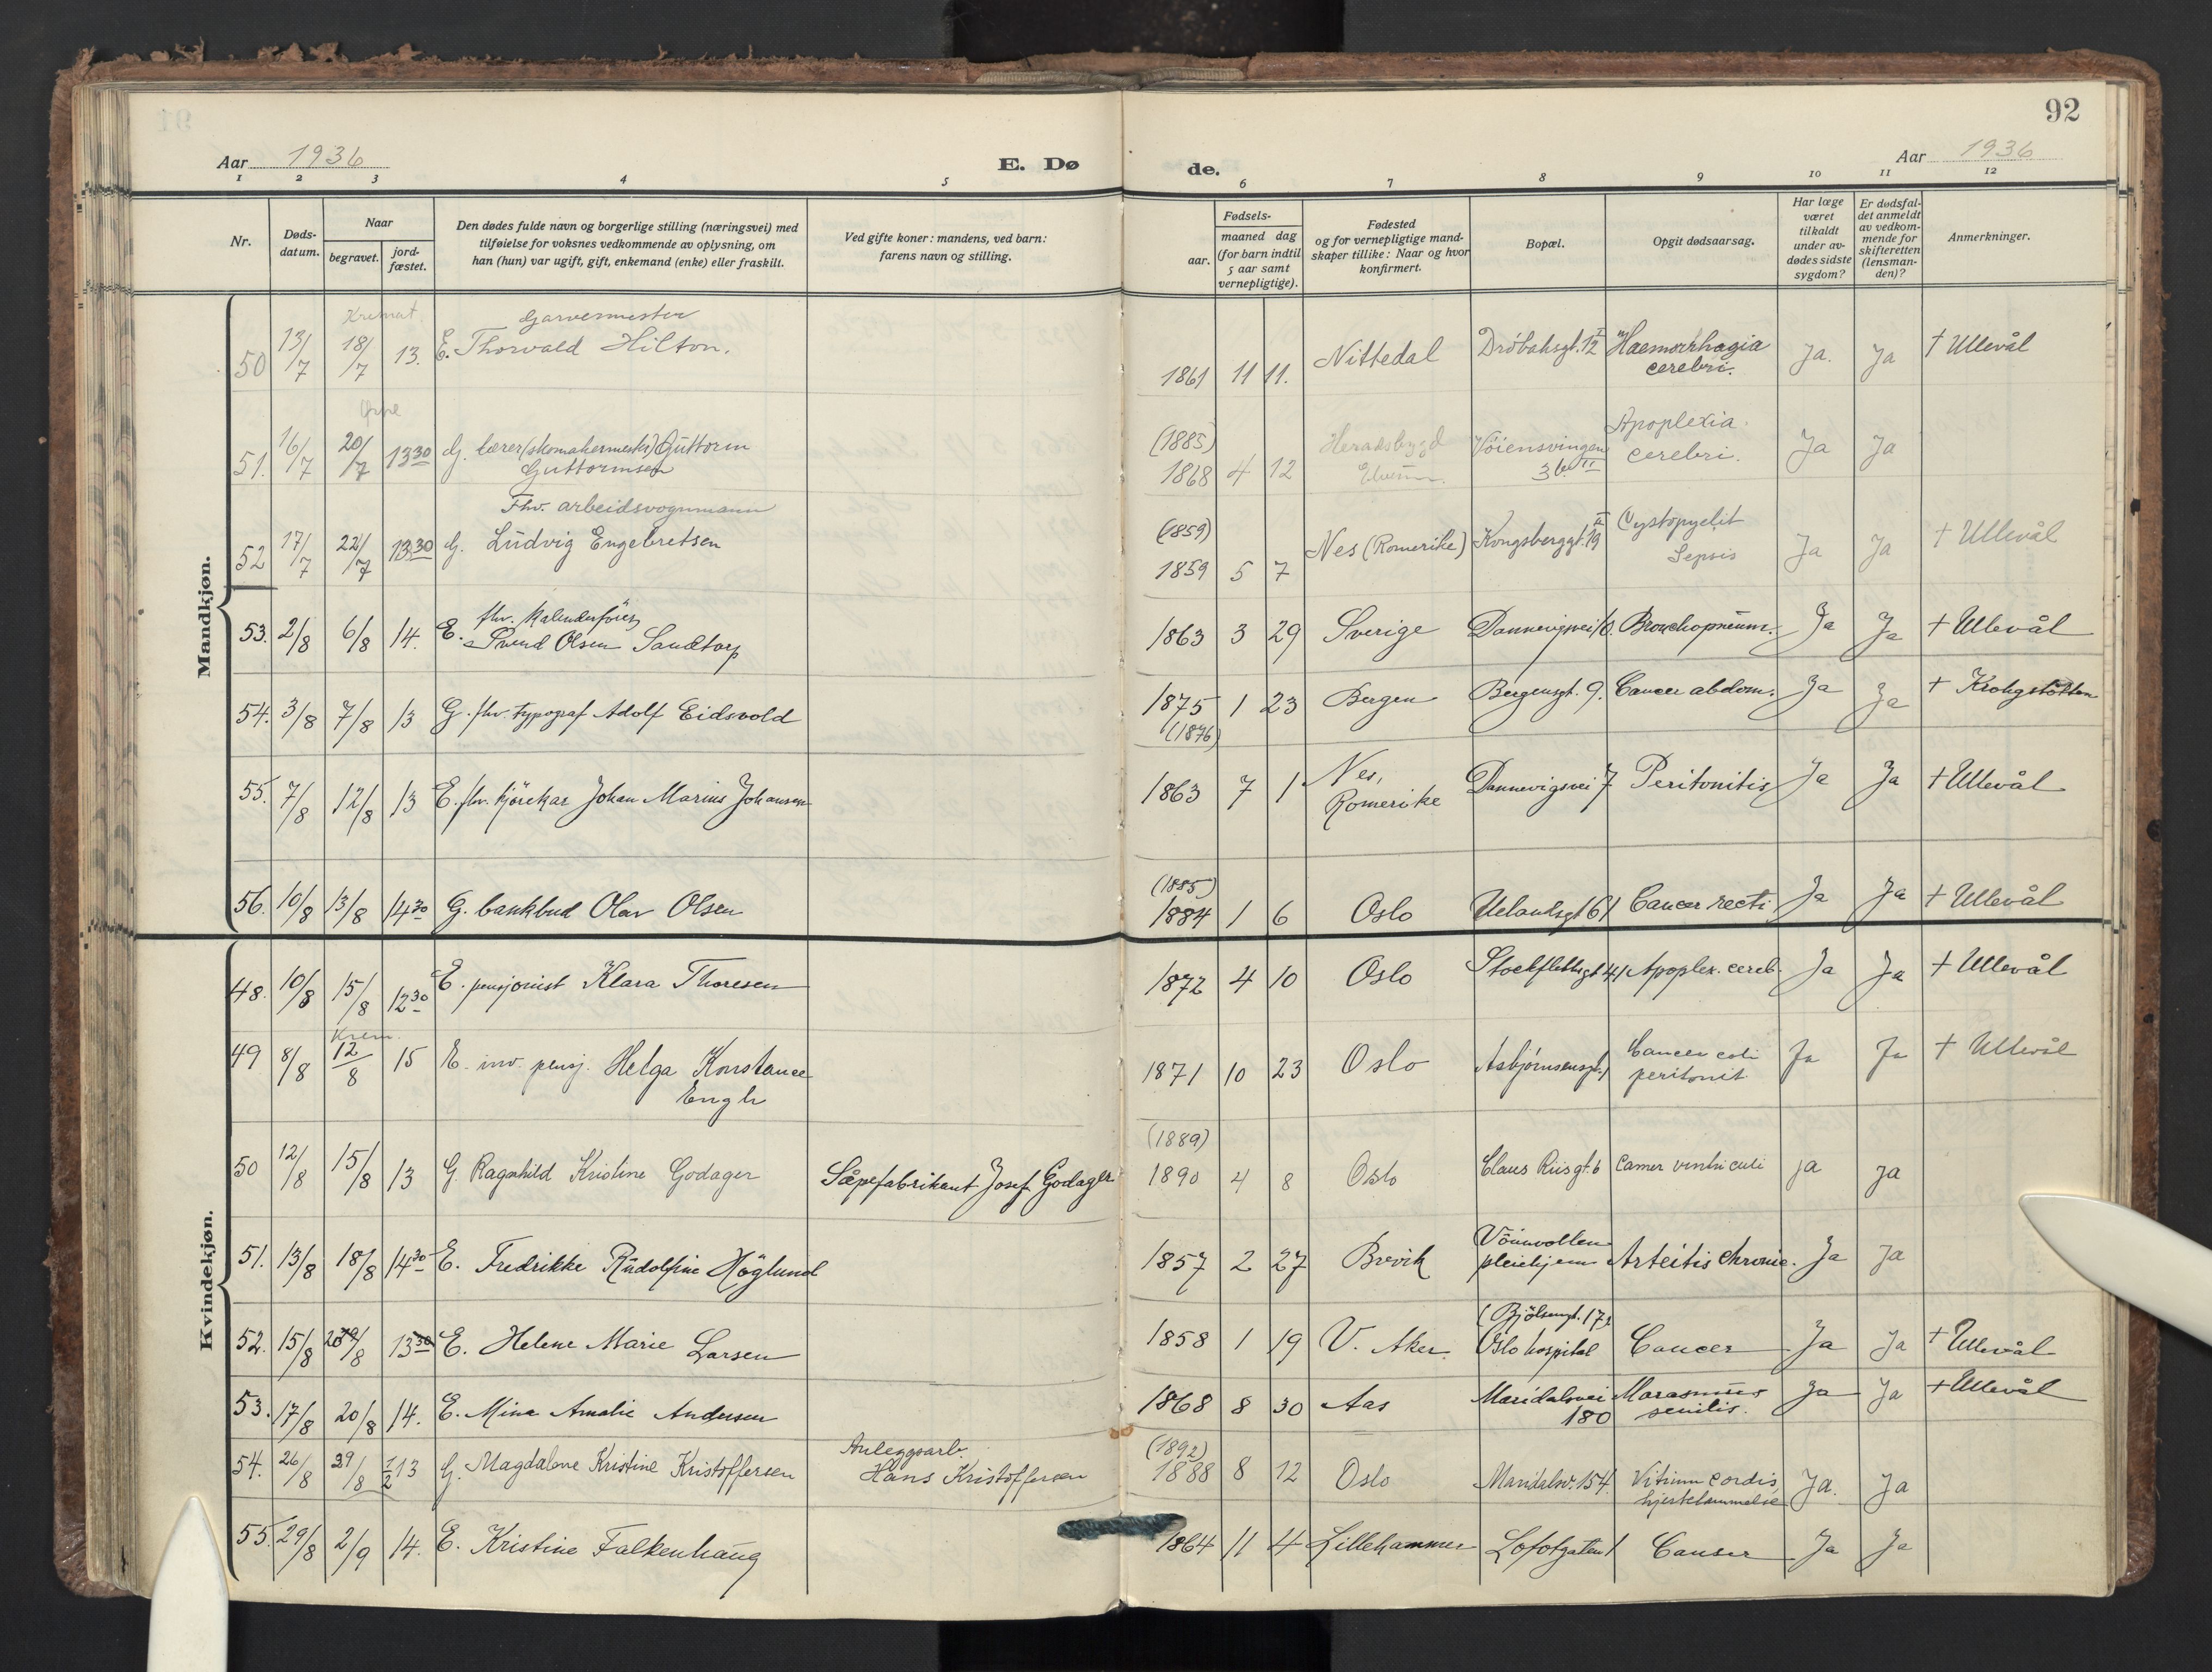 92
Aar 1936
E. Dø
de.
Aar 1936
1 2 3 4 5 6 7 8 9 10 11 12
Nr.
Døds-
datum.
Naar
begravet.
jord-
fæstet.
Den dødes fulde navn og borgerlige stilling (næringsvei) med
tilføielse for voksnes vedkommende av oplysning, om
han (hun) var ugift, gift, enkemand (enke) eller fraskilt.
Ved gifte koner: mandens, ved barn:
farens navn og stilling.
Fødsels-
aar.
maaned dag
(for barn indtil
5 aar samt
vernepligtige).
Fødested
og for vernepligtige mand-
skaper tillike: Naar og hvor
konfirmert.
Bopæl.
Opgit dødsaarsag.
Har læge
været
tilkaldt
under av-
dødes sidste
sygdom?
Er dødsfal-
det anmeldt
av vedkom-
mende for
skifteretten
(lensman-
den)?
Anmerkninger.
Mandkjøn.
Kremat. Garvermester
50 13/7 18/7 13. E. Thorvald Hilton. 1861 11 11. Nittedal Dröbaksgt. 12 I Haemorrhagia Ja. Ja † Ullevål
cerebri.
(1885) Apoplexia
51. 16/7 20/7 13 30 G. lærer (skomakermester) Guttorm 1868 4 12 Heradsbygd Vöiensvingen cerebri. Ja Ja
Guttormsen Elverum. 3 b. II
Fhv. arbeidsvognmann (1859) Cystopyelit
52 17/7 22/7 13 30 G. Ludvig Engebretsen 1859 5 7 Nes (Romerike) Kongsberggt. 19 II Sepsis Ja Ja † Ullevål
fhv. kalenderförer
53. 2/8 6/8 14. E. Svend Olsen Sandtorp 1863 3 29 Sverige Dannevigsvei 10. Bronchopneum. Ja Ja † Ullevål
54. 3/8 7/8 13 G. fhv. typograf Adolf Eidsvold 1875 1 23 Bergen Bergensgt. 9. Cancer abdom. Ja Ja † Krohgstötten
(1876)
55. 7/8 12/8 13 E. fhv. kjörekar Johan Marius Johansen 1863 7 1 Nes, Dannevigsvei 7 Peritonitis Ja Ja † Ullevål
Romerike
(1885)
56. 10/8 13/8 14 30 G. bankbud Olav Olsen 1884 1 6 Oslo Uelandsgt 61 Cancer recti Ja Ja † Ullevål
Kvindekjøn.
48. 10/8 15/8 12 30 E. pensjonist Klara Thoresen 1872 4 10 Oslo Stockflethsgt 41 Apoplex. cereb. Ja Ja † Ullevål
Krem.
49 8/8 12/8 15 E. inv. pensj. Helga Konstance 1871 10 23 Oslo Asbjørnsensgt. 1 Cancer coli Ja Ja † Ullevål
Engh peritonit
(1889)
50 12/8 15/8 13 G. Ragnhild Kristine Godager Såpefabrikant Josef Godager 1890 4 8 Oslo Claus Riisgt. 6 Cancer ventriculi ja ja
51. 13/8 18/8 14 30 E. Fredrikke Rudolfine Höglund 1857 2 27 Brevik Vöienvollen
pleiehjem Arteitis chronic. Ja Ja
(Bjölsengt. 17)
52. 15/8 20/8 13 30 E. Helene Marie Larsen 1858 1 19 V. Aker. Oslo hospital Cancer Ja Ja † Ullevål
53. 17/8 20/8 14. E. Mina Amalie Andersen 1868 8 30 Aas Maridalsvei Marasmus Ja Ja † Ullevål
180 senilis.
Anleggsarb. (1892)
54. 26/8 29/8 1/2 13 G. Magdalene Kristine Kristoffersen Hans Kristoffersen 1888 8 12 Oslo Maridalsv. 154. Vitium cordis, Ja. Ja
hjertelammelse
55. 29/8 2/9 14. E. Kristine Falkenhaug 1864 11 4 Lillehammer Lofotgaten 1 Cancer Ja Ja